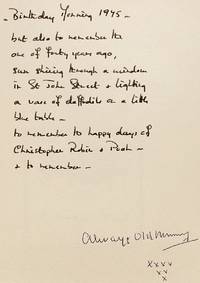 Birthday Morning 1945 –
but also to remember the
one of forty years ago,
sun shining through a window
in St John Street & lighting
a vase of daffodils on a little
blue table –
to remember the happy days of
Christopher Robin & Pooh –
& to remember –
Always Old Mummy
x x x x
x x
x